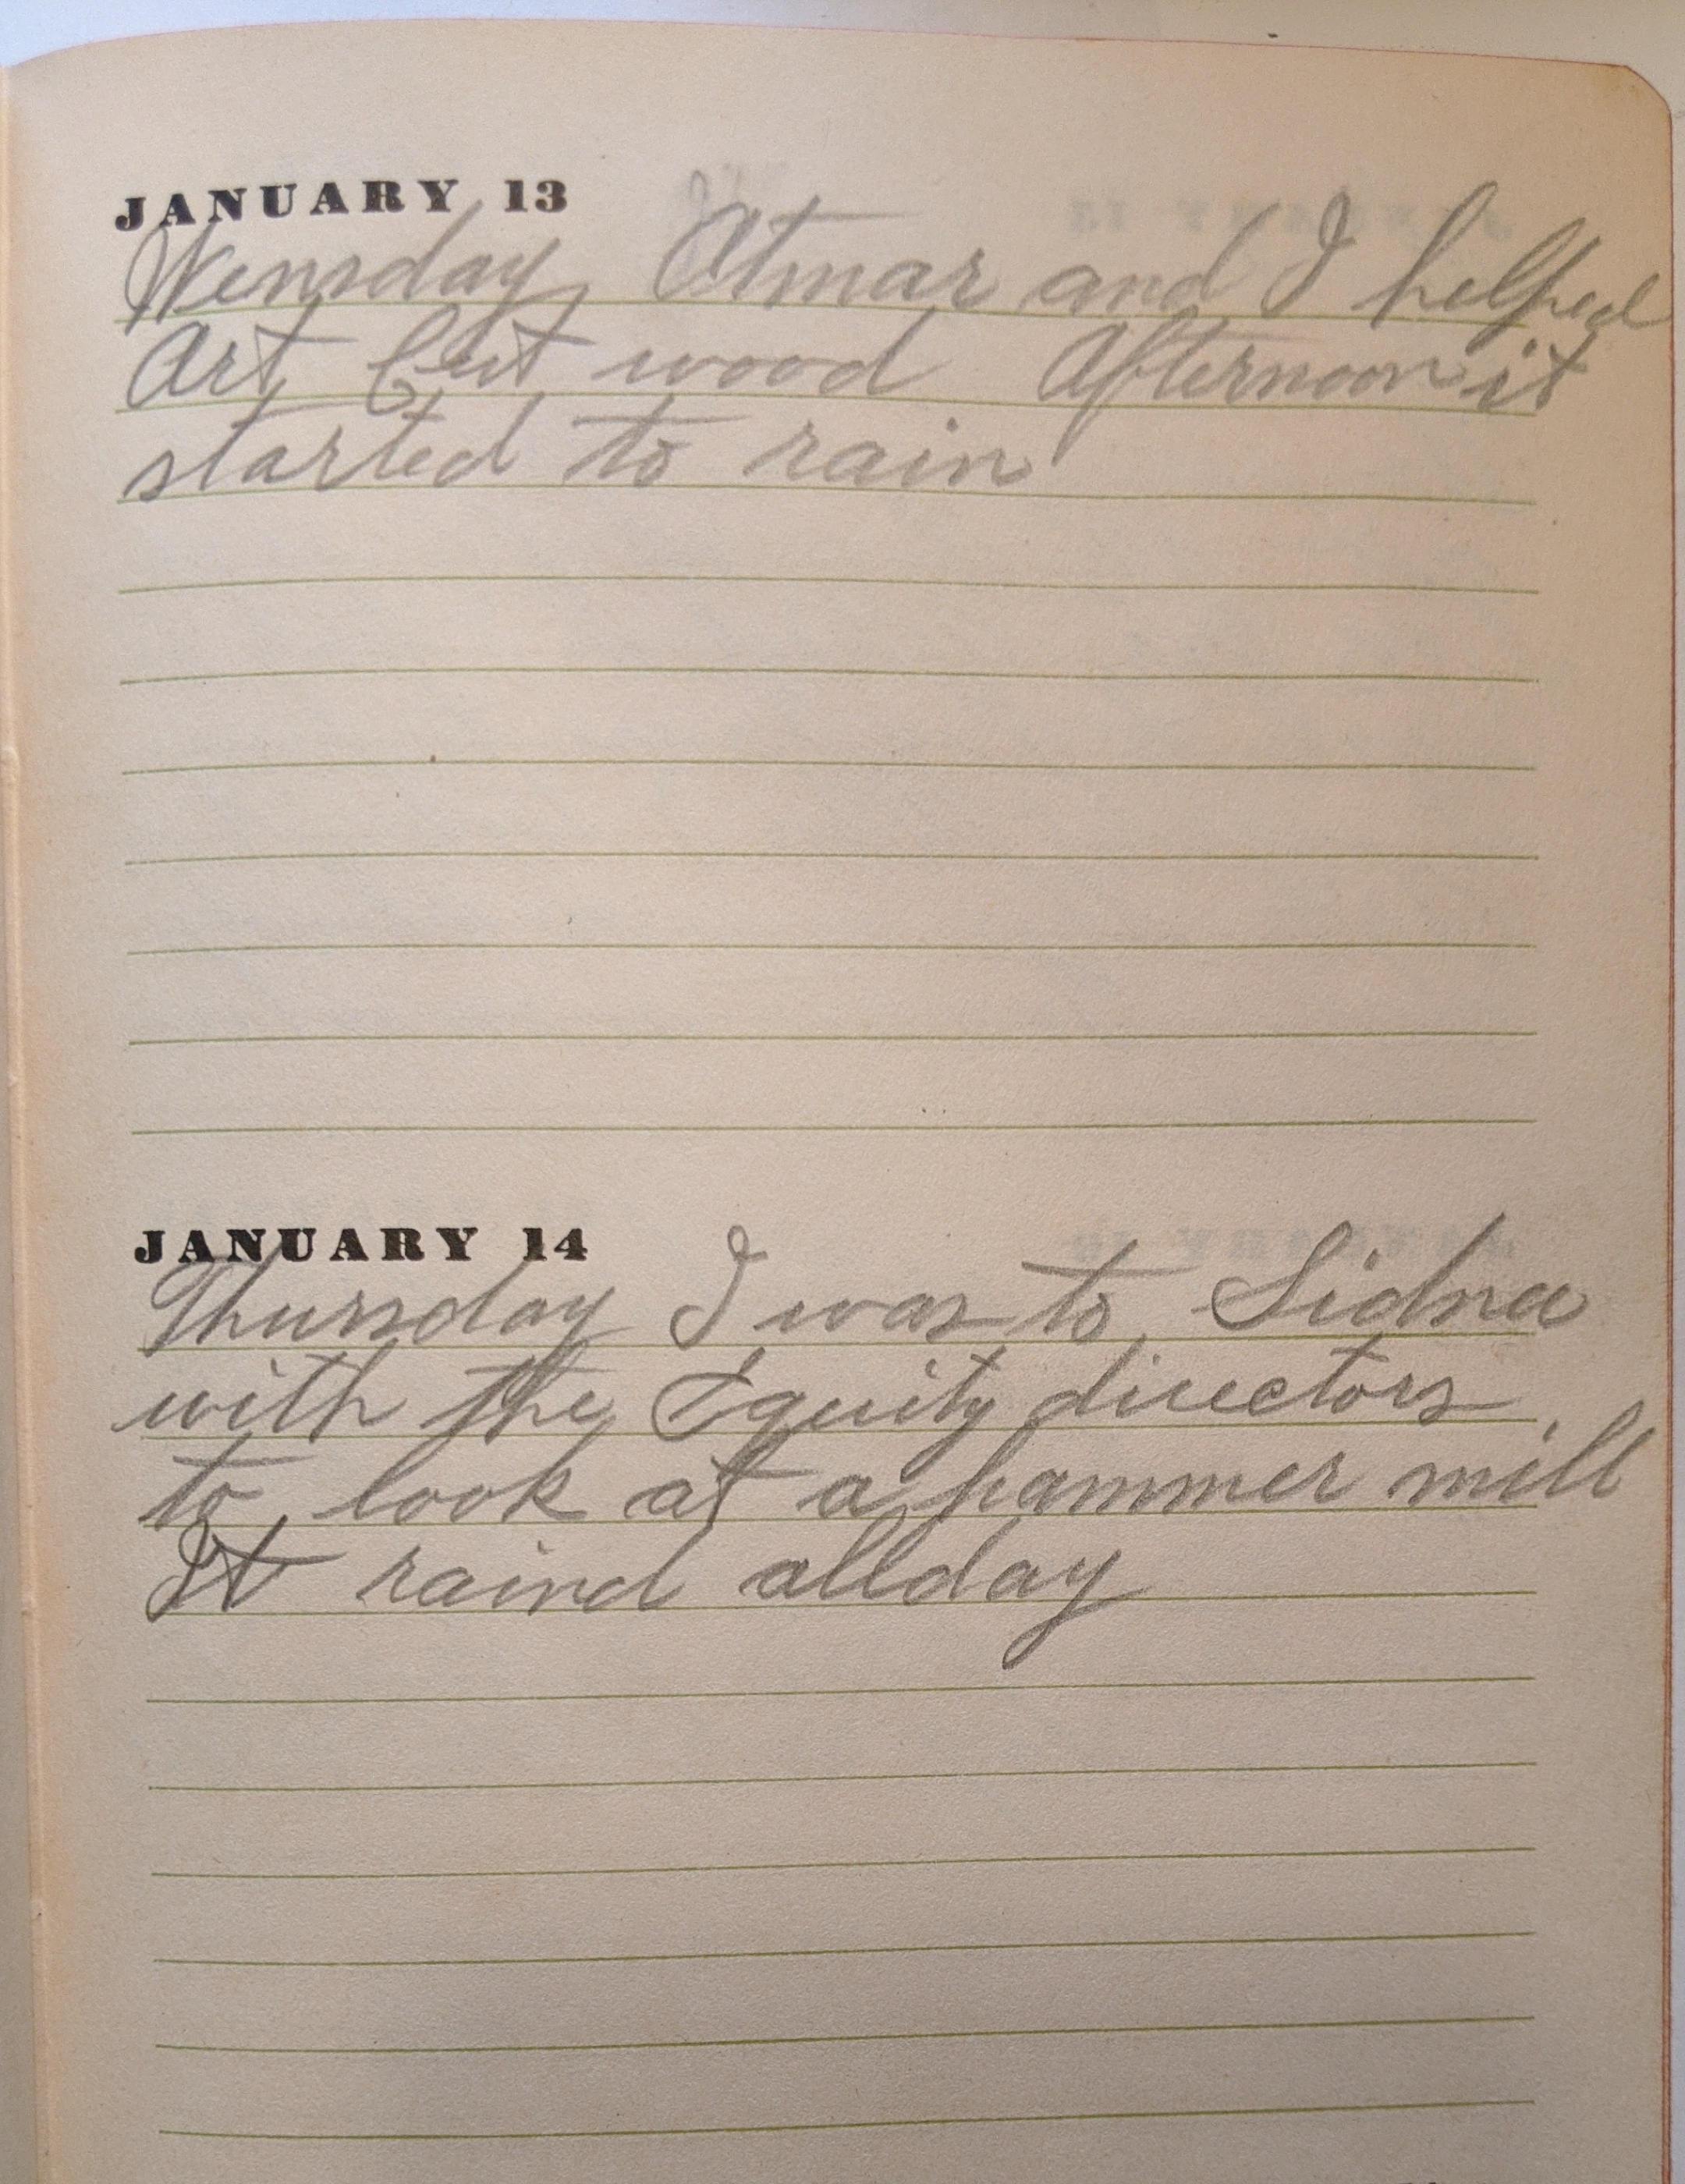 JANUARY 13
Wensday Otmar and I helped
Art Cut wood Afternoon it
started to rain
JANUARY 14
Thursday I was to Sidna
with the Equity directors
to look at a hammer mill
It raind allday